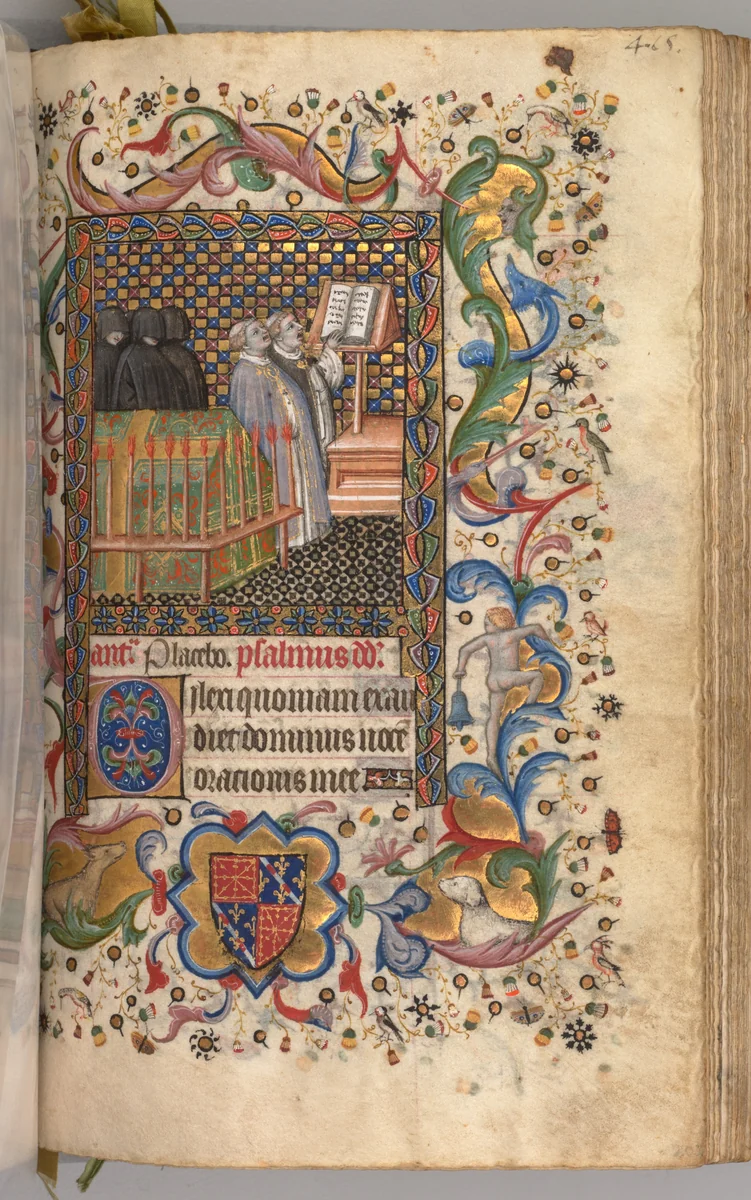 465.
antᵃ Placebo. psalmus dd'.
Dilexi quoniam exau
diet dominus vocē
orationis mee